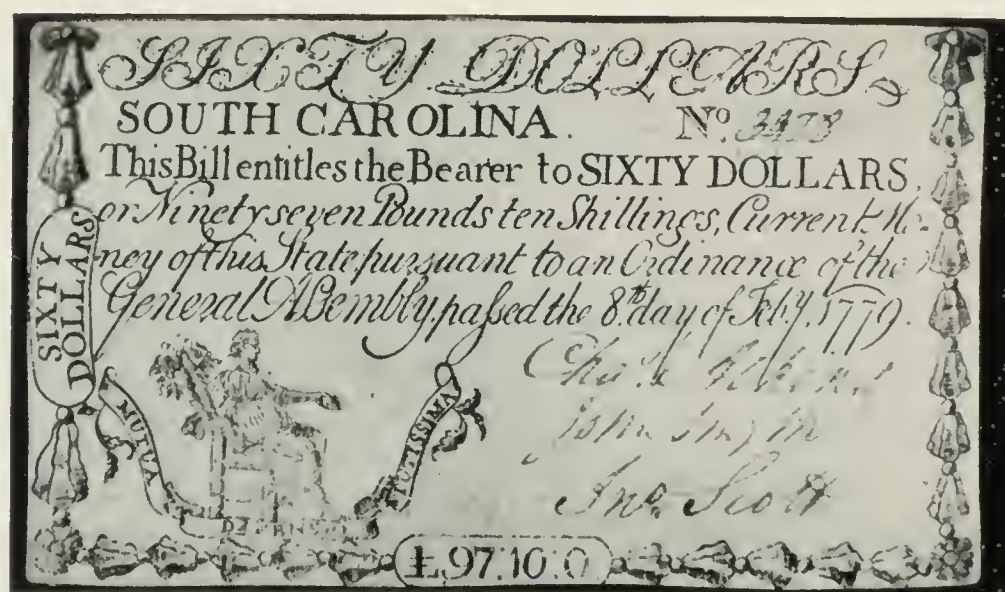 SIXTY DOLLARS
SOUTH CAROLINA. No. 3473
This Bill entitles the Bearer to SIXTY DOLLARS,
or Ninety seven Pounds ten Shillings, Current Mo-
ney of this State pursuant to an Ordinance of the
General Aſsembly, paſsed the 8th day of Feby. 1779.
SIXTY
DOLLARS
MUTUA
DEFENSIO
TUTISSIMA
Jno. Scott
£.97.10.0